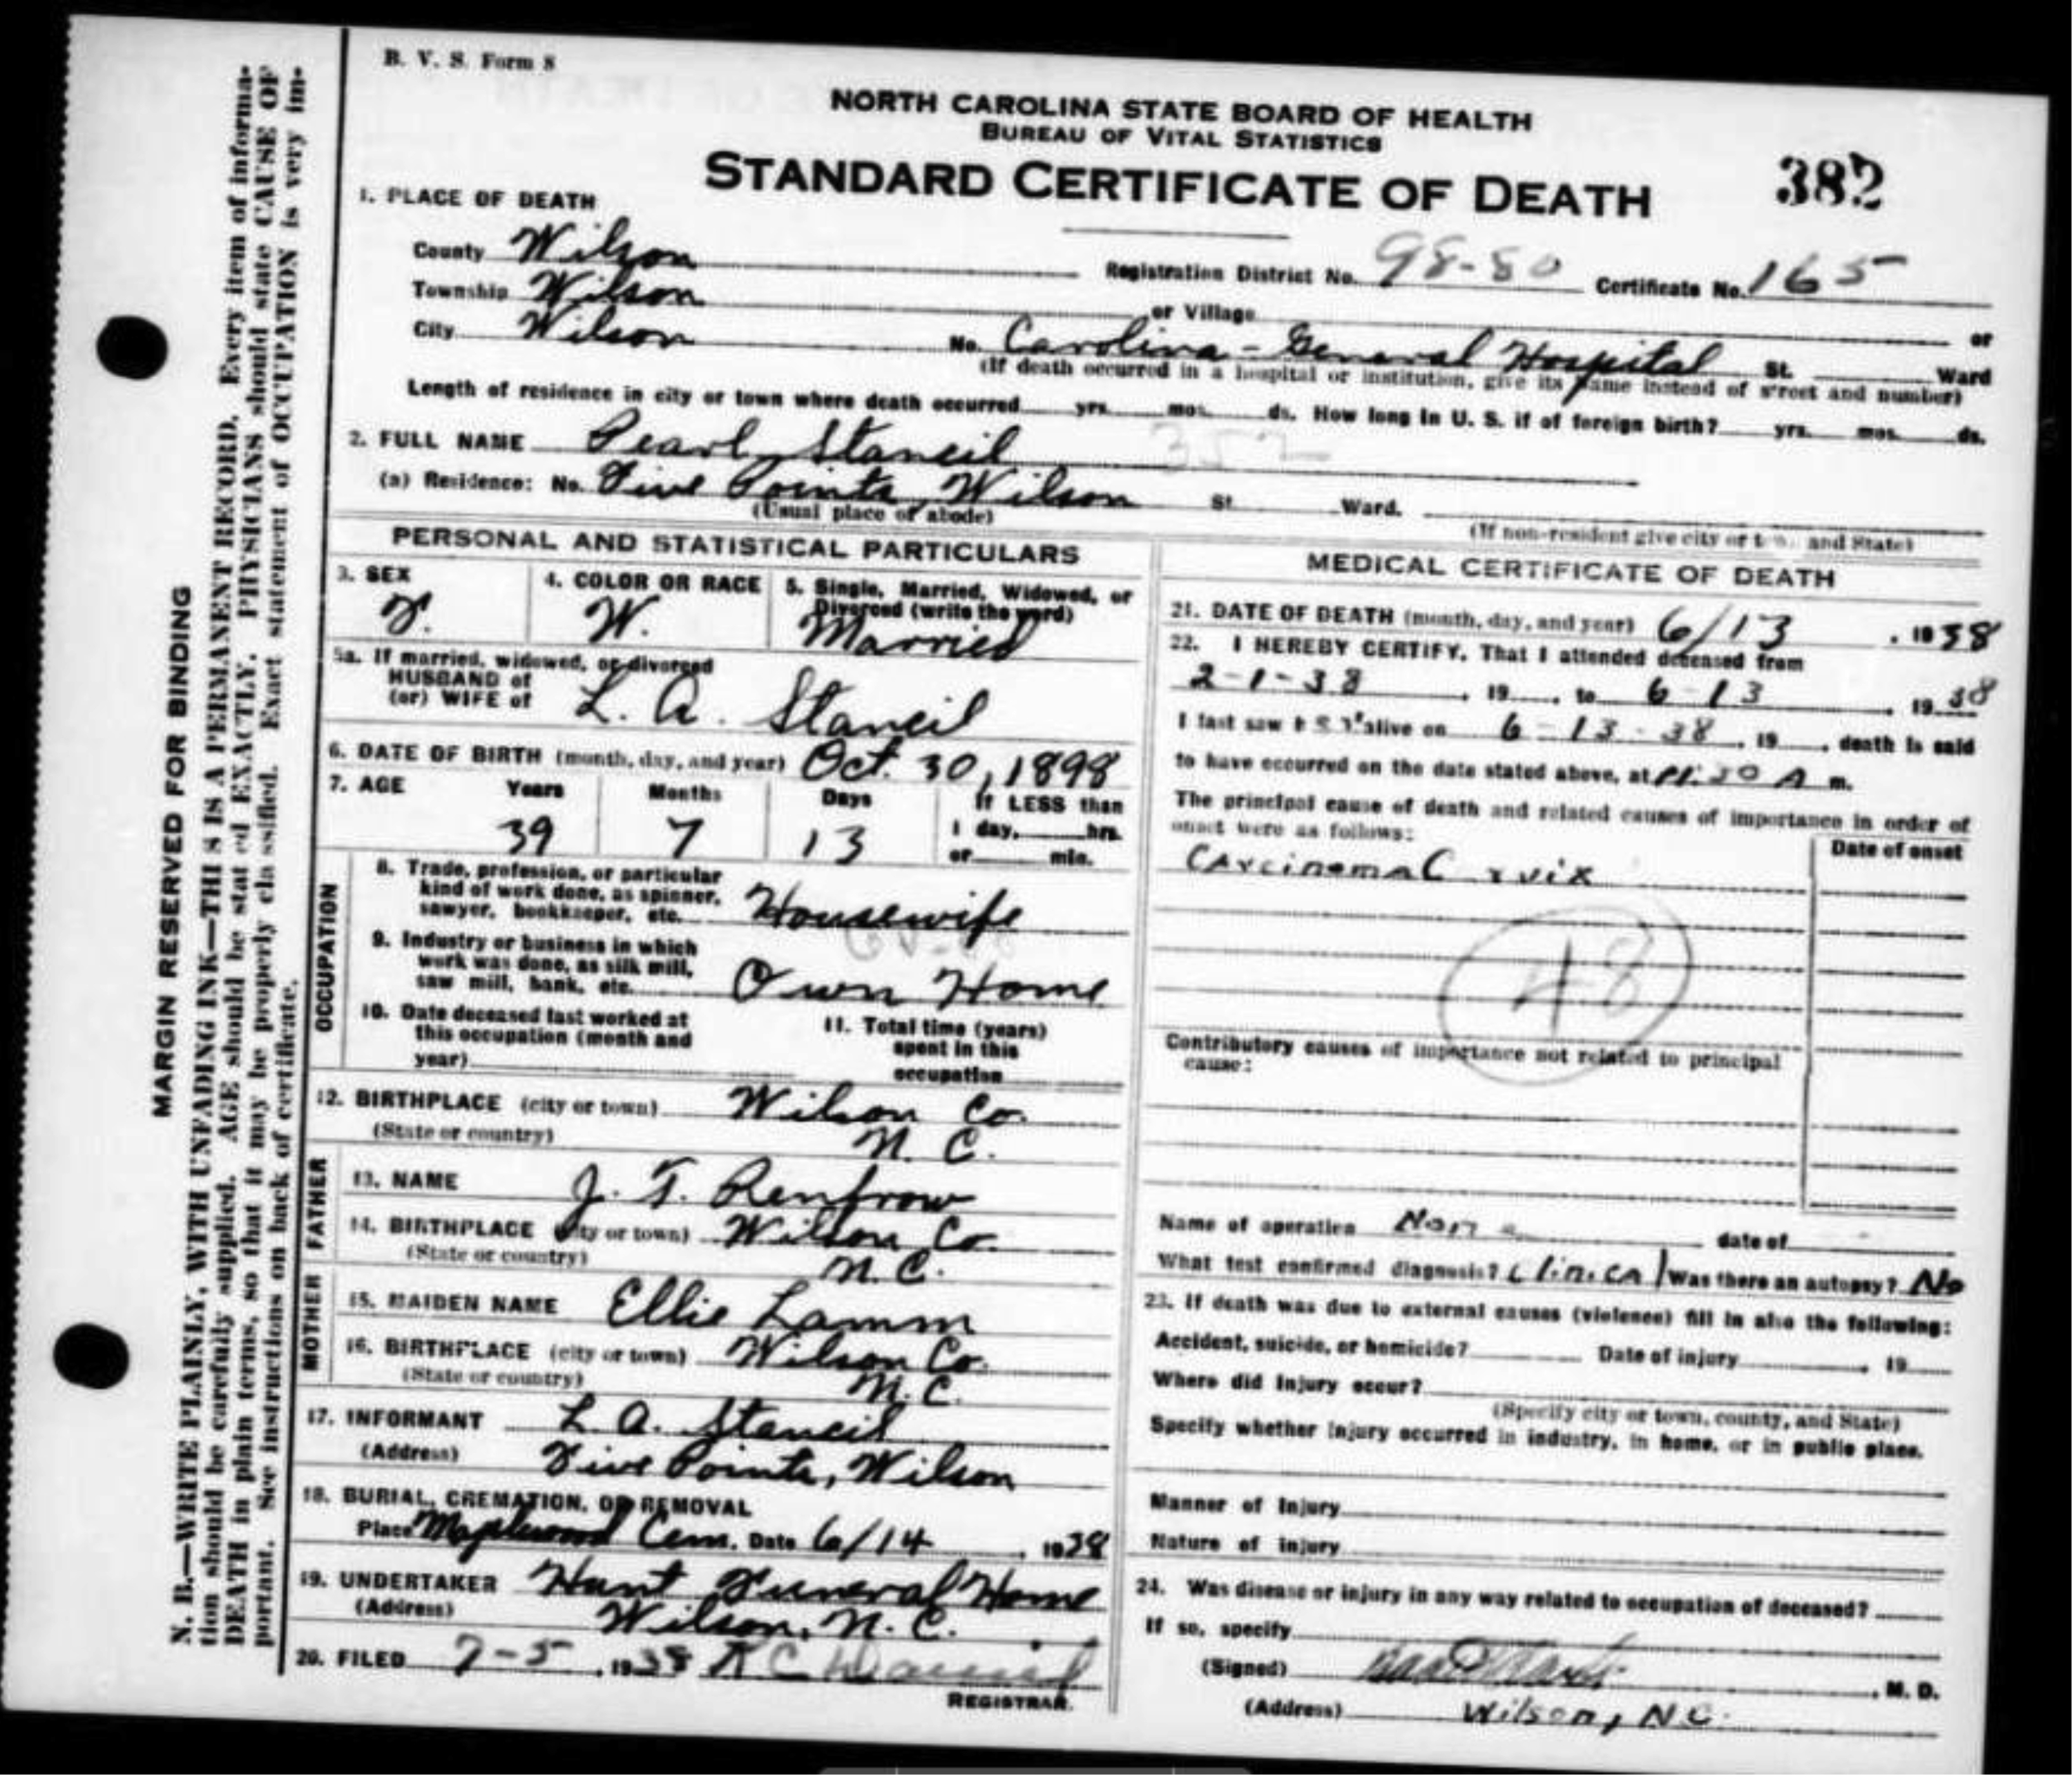 B. V. S. Form 8
NORTH CAROLINA STATE BOARD OF HEALTH
BUREAU OF VITAL STATISTICS
STANDARD CERTIFICATE OF DEATH
382
1. PLACE OF DEATH
County Wilson Registration District No. 98-80 Certificate No. 165
Township Wilson or Village or
City Wilson No. Carolina-General Hospital St. Ward
(If death occurred in a hospital or institution, give its name instead of street and number)
Length of residence in city or town where death occurred yrs. mos. ds. How long in U. S. if of foreign birth? yrs. mos. ds.
2. FULL NAME Pearl Stancil 352
(a) Residence: No. Five Points, Wilson St. Ward.
(Usual place of abode) (If non-resident give city or town and State)
PERSONAL AND STATISTICAL PARTICULARS
3. SEX 4. COLOR OR RACE 5. Single, Married, Widowed, or
Divorced (write the word)
F. W. Married
5a. If married, widowed, or divorced
HUSBAND of
(or) WIFE of L. A. Stancil
6. DATE OF BIRTH (month, day, and year) Oct. 30, 1898
7. AGE Years Months Days If LESS than
39 7 13 1 day, hrs.
or min.
OCCUPATION
8. Trade, profession, or particular
kind of work done, as spinner,
sawyer, bookkeeper, etc. Housewife
9. Industry or business in which
work was done, as silk mill,
saw mill, bank, etc. Own Home
10. Date deceased last worked at
this occupation (month and
year)
11. Total time (years)
spent in this
occupation
12. BIRTHPLACE (city or town) Wilson Co.
(State or country) N. C.
FATHER
13. NAME J. T. Renfrow
14. BIRTHPLACE (city or town) Wilson Co.
(State or country) N. C.
MOTHER
15. MAIDEN NAME Ellie Lamm
16. BIRTHPLACE (city or town) Wilson Co.
(State or country) N. C.
17. INFORMANT L. A. Stancil
(Address) Five Points, Wilson
18. BURIAL, CREMATION, OR REMOVAL
Place Maplewood Cem. Date 6/14, 1938
19. UNDERTAKER Hunt Funeral Home
(Address) Wilson, N. C.
20. FILED 7-5, 1938 R C Daniel
REGISTRAR.
MEDICAL CERTIFICATE OF DEATH
21. DATE OF DEATH (month, day, and year) 6/13, 1938
22. I HEREBY CERTIFY, That I attended deceased from
2-1-38, 19 , to 6-13 1938
I last saw alive on 6-13-38, 19 , death is said
to have occurred on the date stated above, at 11:30 A m.
The principal cause of death and related causes of importance in order of
onset were as follows:
Date of onset
Carcinoma C rvix
48
Contributory causes of importance not related to principal
cause:
Name of operation None date of
What test confirmed diagnosis? Clinical Was there an autopsy? No
23. If death was due to external causes (violence) fill in also the following:
Accident, suicide, or homicide? Date of injury , 19
Where did injury occur?
(Specify city or town, county, and State)
Specify whether injury occurred in industry, in home, or in public place.
Manner of injury
Nature of injury
24. Was disease or injury in any way related to occupation of deceased?
If so, specify
(Signed) , M. D.
(Address) Wilson, N.C.
MARGIN RESERVED FOR BINDING
N. B.—WRITE PLAINLY, WITH UNFADING INK—THIS IS A PERMANENT RECORD. Every item of informa-
tion should be carefully supplied. AGE should be stated EXACTLY. PHYSICIANS should state CAUSE OF
DEATH in plain terms, so that it may be properly classified. Exact statement of OCCUPATION is very im-
portant. See instructions on back of certificate.